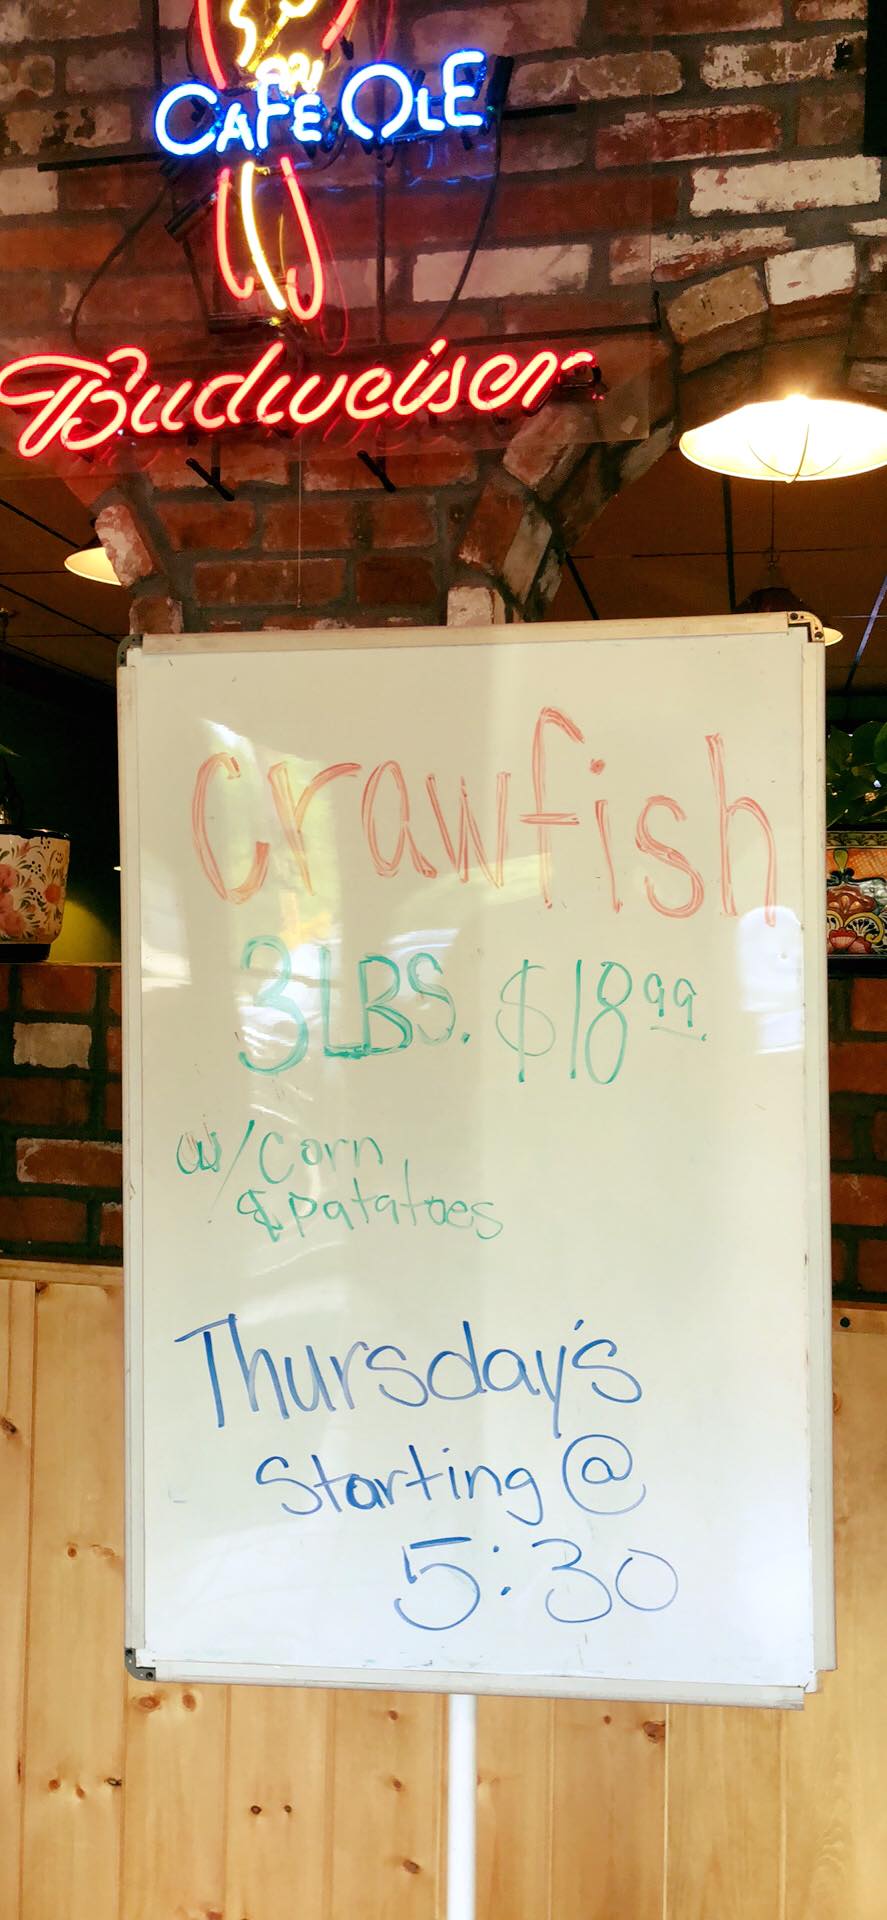 CAFE OLE
Budweiser
crawfish
3LBS. $18 99
w/corn
& patatoes
Thursday's
Starting @
5:30